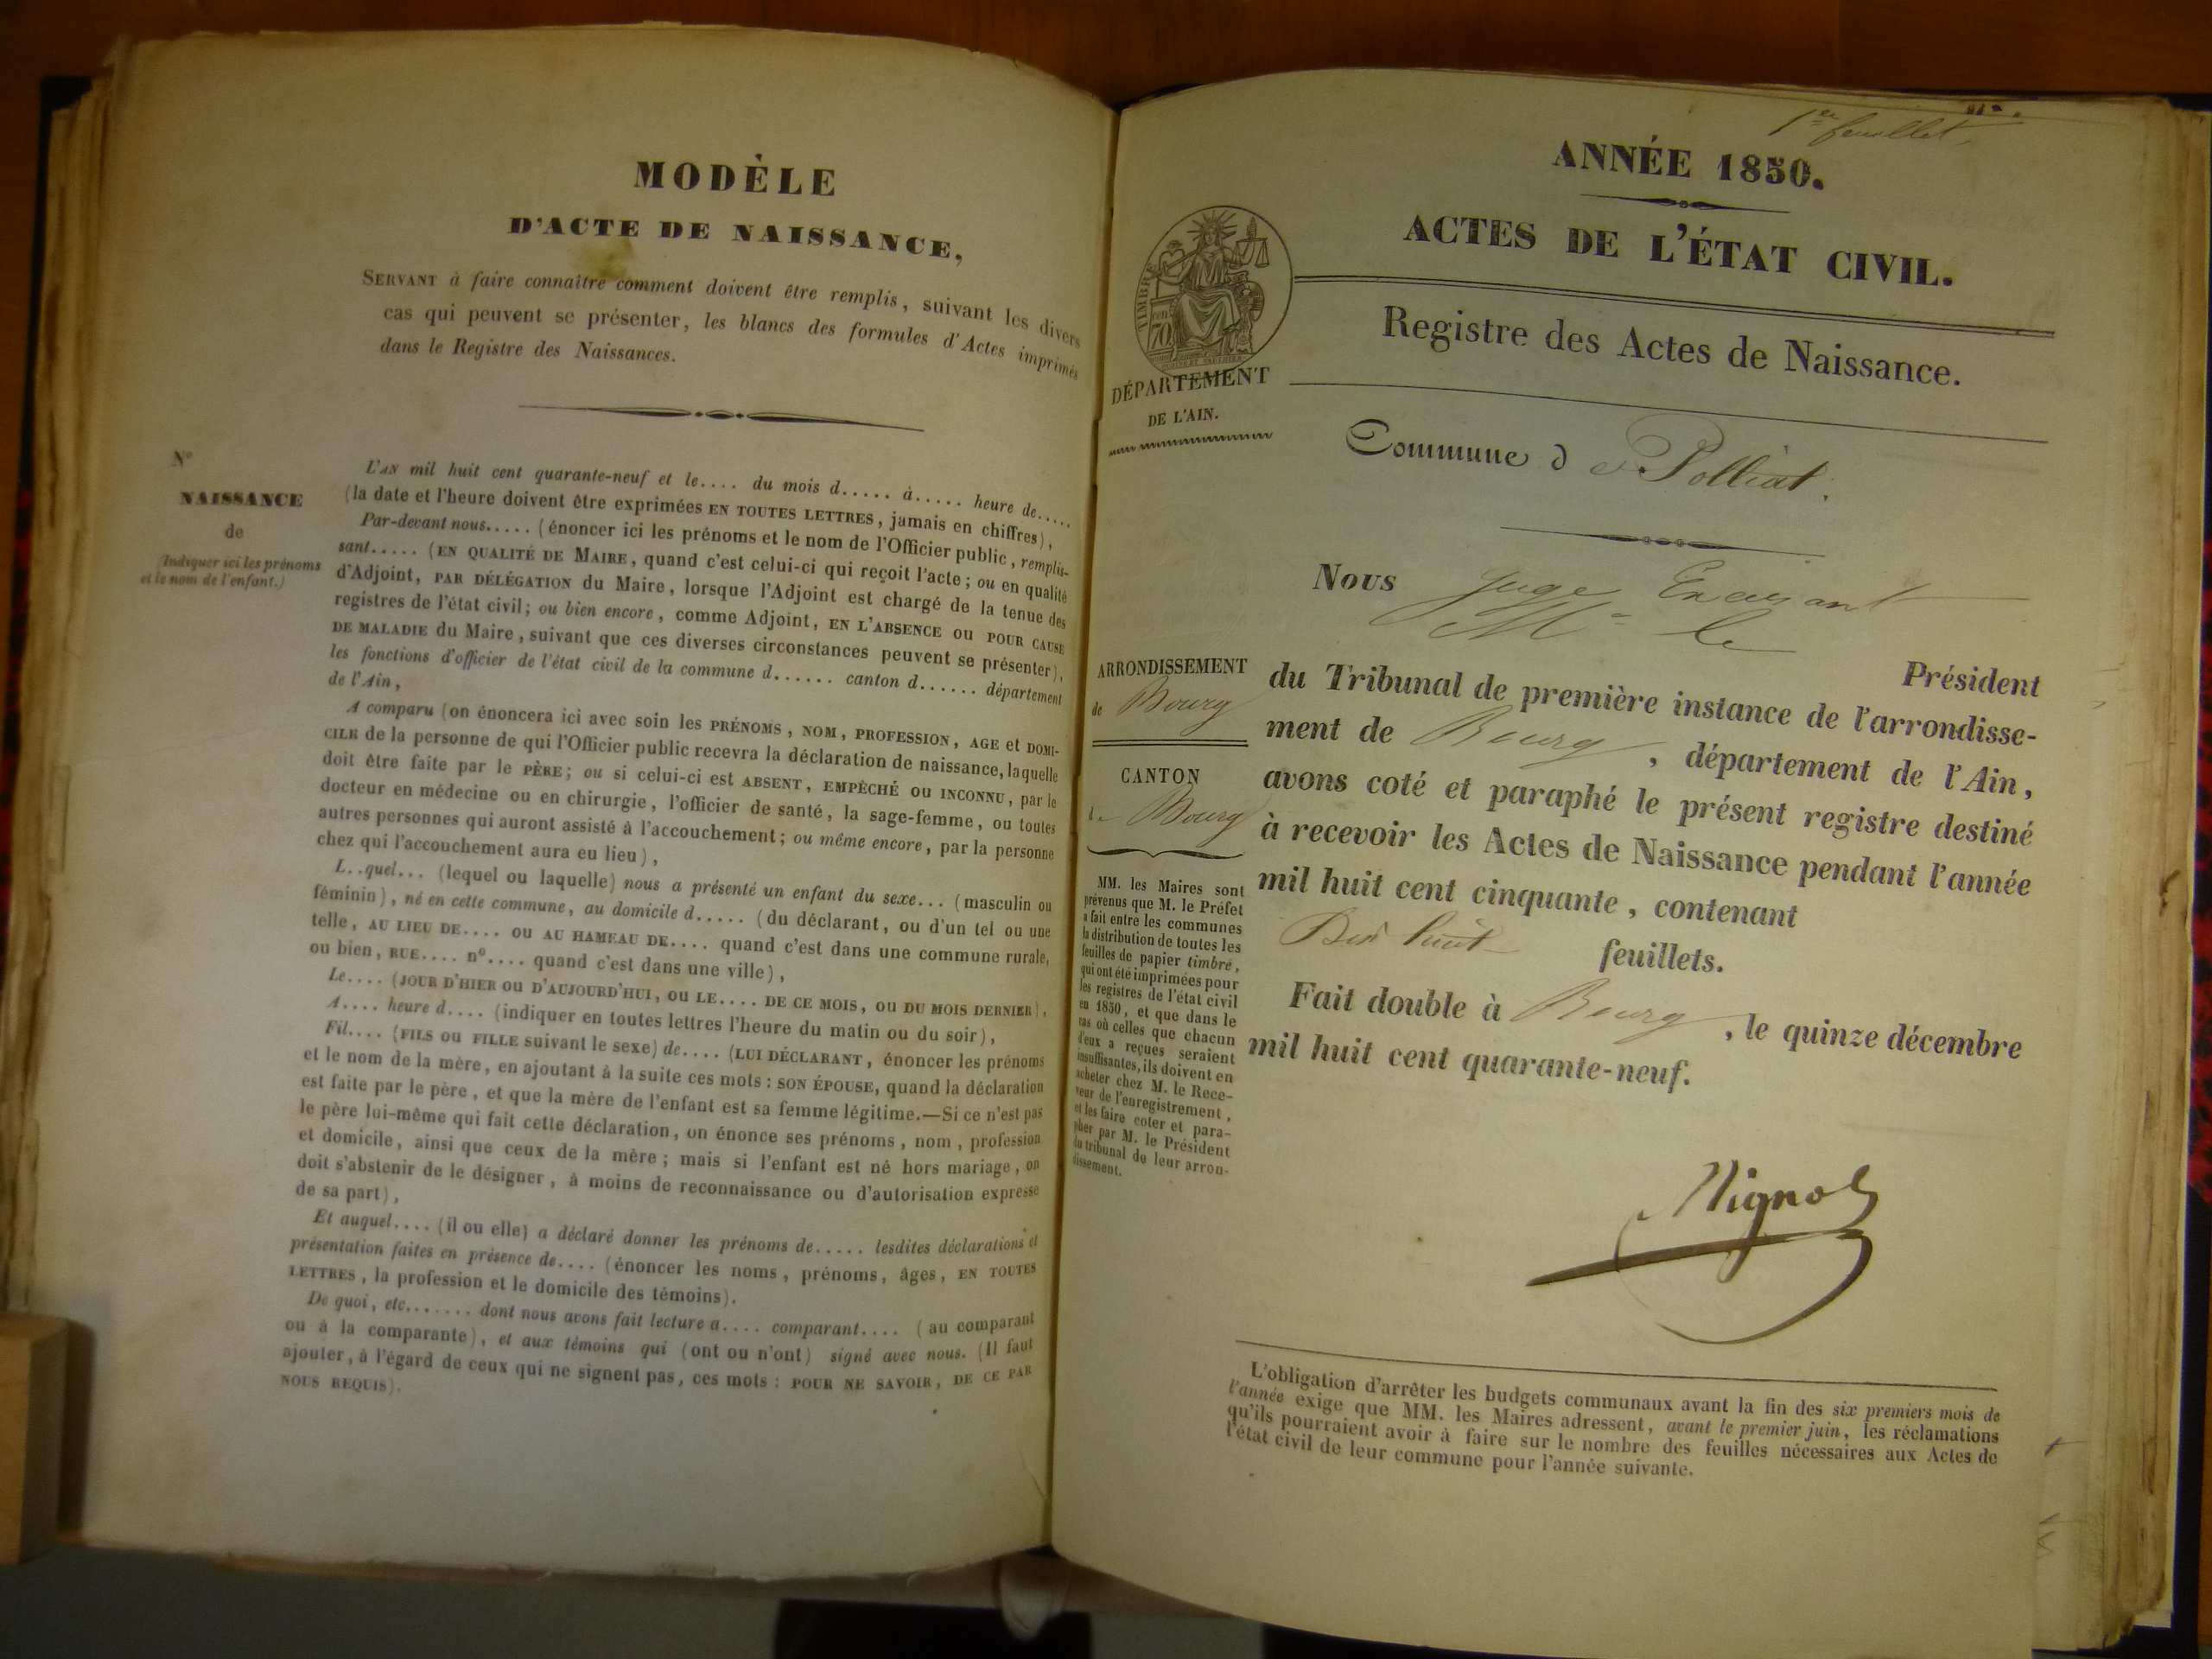 MODÈLE
D'ACTE DE NAISSANCE,
SERVANT à faire connaître comment doivent être remplis, suivant les divers
cas qui peuvent se présenter, les blancs des formules d'Actes imprimés
dans le Registre des Naissances.
N°
NAISSANCE
de
(Indiquer ici les prénoms
et le nom de l'enfant.)
L'AN mil huit cent quarante-neuf et le.... du mois d..... à..... heure de.....
(la date et l'heure doivent être exprimées EN TOUTES LETTRES, jamais en chiffres),
Par-devant nous..... (énoncer ici les prénoms et le nom de l'Officier public, remplis-
sant..... (EN QUALITÉ DE MAIRE, quand c'est celui-ci qui reçoit l'acte; ou en qualité
d'Adjoint, PAR DÉLÉGATION du Maire, lorsque l'Adjoint est chargé de la tenue des
registres de l'état civil; ou bien encore, comme Adjoint, EN L'ABSENCE OU POUR CAUSE
DE MALADIE du Maire, suivant que ces diverses circonstances peuvent se présenter),
les fonctions d'officier de l'état civil de la commune d...... canton d...... département
de l'Ain,
A comparu (on énoncera ici avec soin les PRÉNOMS, NOM, PROFESSION, AGE et DOMI-
CILE de la personne de qui l'Officier public recevra la déclaration de naissance, laquelle
doit être faite par le PÈRE; ou si celui-ci est ABSENT, EMPÊCHÉ OU INCONNU, par le
docteur en médecine ou en chirurgie, l'officier de santé, la sage-femme, ou toutes
autres personnes qui auront assisté à l'accouchement; ou même encore, par la personne
chez qui l'accouchement aura eu lieu),
L..quel... (lequel ou laquelle) nous a présenté un enfant du sexe... (masculin ou
féminin), né en cette commune, au domicile d..... (du déclarant, ou d'un tel ou une
telle, AU LIEU DE.... OU AU HAMEAU DE.... quand c'est dans une commune rurale,
ou bien, RUE.... n°.... quand c'est dans une ville),
Le.... (JOUR D'HIER OU D'AUJOURD'HUI, OU LE.... DE CE MOIS, OU DU MOIS DERNIER),
A.... heure d.... (indiquer en toutes lettres l'heure du matin ou du soir),
Fil.... (FILS OU FILLE suivant le sexe) de.... (LUI DÉCLARANT, énoncer les prénoms
et le nom de la mère, en ajoutant à la suite ces mots: SON ÉPOUSE, quand la déclaration
est faite par le père, et que la mère de l'enfant est sa femme légitime.—Si ce n'est pas
le père lui-même qui fait cette déclaration, on énonce ses prénoms, nom, profession
et domicile, ainsi que ceux de la mère; mais si l'enfant est né hors mariage, on
doit s'abstenir de le désigner, à moins de reconnaissance ou d'autorisation expresse
de sa part),
Et auquel.... (il ou elle) a déclaré donner les prénoms de..... lesdites déclarations et
présentation faites en présence de.... (énoncer les noms, prénoms, âges, EN TOUTES
LETTRES, la profession et le domicile des témoins).
De quoi, etc....... dont nous avons fait lecture a.... comparant.... (au comparant
ou à la comparante), et aux témoins qui (ont ou n'ont) signé avec nous. (Il faut
ajouter, à l'égard de ceux qui ne signent pas, ces mots: POUR NE SAVOIR, DE CE PAR
NOUS REQUIS).
1er feuillet
ANNÉE 1850.
ACTES DE L'ÉTAT CIVIL.
Registre des Actes de Naissance.
TIMBRE
70
DÉPARTEMENT
DE L'AIN.
Commune de Polliat.
Nous juge
Mr le
Président
du Tribunal de première instance de l'arrondisse-
ment de Bourg, département de l'Ain,
avons coté et paraphé le présent registre destiné
à recevoir les Actes de Naissance pendant l'année
mil huit cent cinquante, contenant
Dix huit feuillets.
Fait double à Bourg, le quinze décembre
mil huit cent quarante-neuf.
ARRONDISSEMENT
de Bourg
CANTON
de Bourg
MM. les Maires sont
prévenus que M. le Préfet
a fait entre les communes
la distribution de toutes les
feuilles de papier timbré,
qui ont été imprimées pour
les registres de l'état civil
en 1850, et que dans le
cas où celles que chacun
d'eux a reçues seraient
insuffisantes, ils doivent en
acheter chez M. le Rece-
veur de l'enregistrement,
et les faire coter et para-
pher par M. le Président
du tribunal de leur arron-
dissement.
L'obligation d'arrêter les budgets communaux avant la fin des six premiers mois de
l'année exige que MM. les Maires adressent, avant le premier juin, les réclamations
qu'ils pourraient avoir à faire sur le nombre des feuilles nécessaires aux Actes de
l'état civil de leur commune pour l'année suivante.